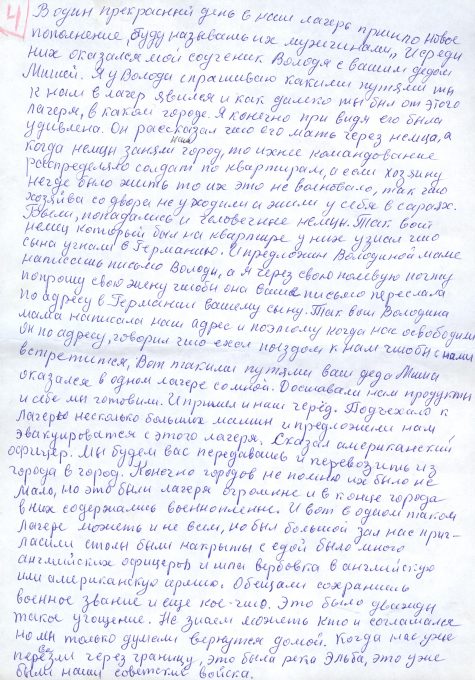 4
В один прекрасный день в наш лагерь пришло новое
пополнение, буду называть их мужчинами, и среди
них оказался мой соученик Володя с вашим дедом
Мишей. Я у Володи спрашиваю какими путями ты
к нам в лагерь явился и как далеко ты был от этого
лагеря, в каком городе. Я конечно при видя его была
удивлена. Он рассказал что его мать через немца, а
когда немцы заняли наш город, то ихнее командование
распределяло солдат по квартирам, а если хозяину
негде было жить то их это не волновало, так что
хозяйва со двора не уходили а жили у себя в сараях.
Были, попадались и человечные немцы. Так вот
немец который был на квартире у них узнал что
сына угнали в Германию. И предложил Володиной маме
написать письмо Володи, а я через свою полевую почту
попрошу свою жену чтобы она ваше письмо переслала
по адресу в Германии вашему сыну. Так вот Володина
мама написала наш адрес и поэтому когда нас освободили
он по адресу, говорил что ехал поездом к нам чтобы с нами
встретится, Вот такими путями ваш деда Миша
оказался в одном лагере со мной. Доставали нам продукты
и себе мы готовили. И пришел и наш черёд. Подъехало к
лагерю несколько больших машин и предложили нам
эвакуироватся с этого лагеря. Сказал американский
офицер. Мы будем вас передавать и перевозить из
города в город. Конечно городов не помню их было не
мало, но это были лагеря огромные и в конце города
в них содержались военнопленые. И вот в одном таком
лагере можеть и не всем, но был большой зал нас приг-
ласили столы были накрыты с едой было много
английских офицеров и шла вербовка в английскую
или американскую армию. Обещали сохранить
военное звание и еще кое-что. Это было уважды
такое угощение. Не знаем можеть кто и соглашался
но мы только думали вернутся домой. Когда нас уже
перевезли через границу, это была река Эльба, это уже
были наши советские войска.